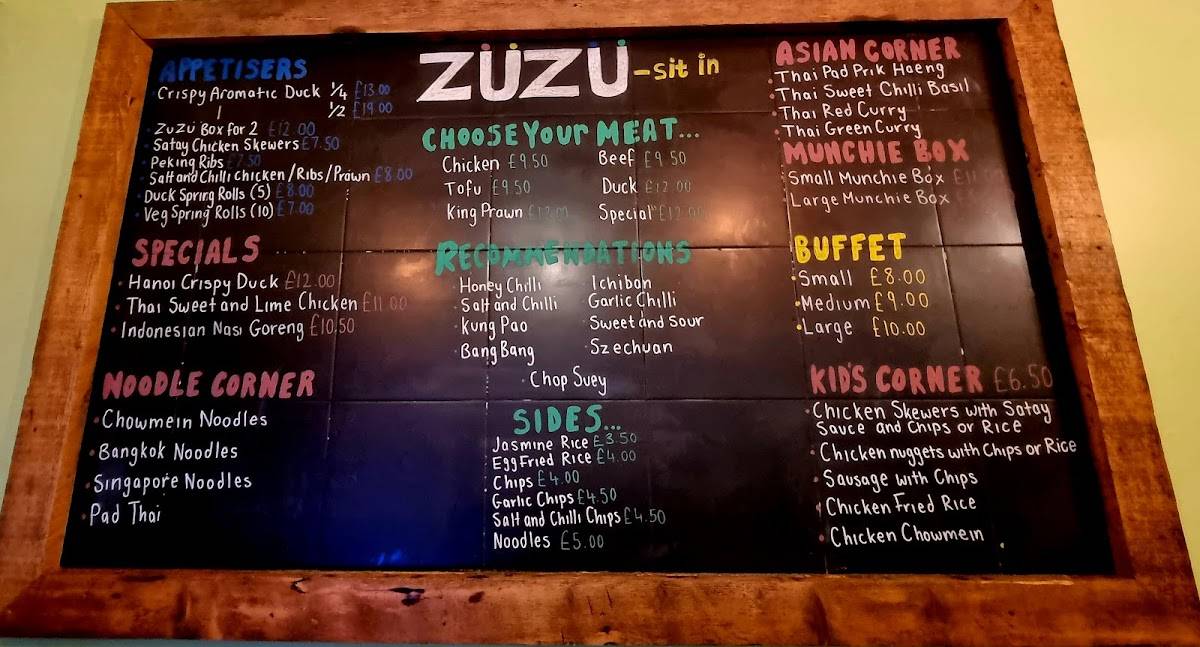 ZÜZÜ - sit in
APPETISERS
Crispy Aromatic Duck 1/4 £13.00
1/2 £19.00
ZÜZÜ Box for 2 £12.00
Satay Chicken Skewers £7.50
Peking Ribs £7.50
Salt and Chilli Chicken/Ribs/Prawn £8.00
Duck Spring Rolls (5) £8.00
Veg Spring Rolls (10) £7.00
SPECIALS
Hanoi Crispy Duck £12.00
Thai Sweet and Lime Chicken £11.00
Indonesian Nasi Goreng £10.50
NOODLE CORNER
Chowmein Noodles
Bangkok Noodles
Singapore Noodles
Pad Thai
CHOOSE YOUR MEAT...
Chicken £9.50 Beef £9.50
Tofu £9.50 Duck £12.00
King Prawn £12.00 Special £12.00
RECOMMENDATIONS
Honey Chilli Ichiban
Salt and Chilli Garlic Chilli
Kung Pao Sweet and Sour
Bang Bang Szechuan
Chop Suey
SIDES...
Jasmine Rice £3.50
Egg Fried Rice £4.00
Chips £4.00
Garlic Chips £4.50
Salt and Chilli Chips £4.50
Noodles £5.00
ASIAN CORNER
Thai Pad Prik Haeng
Thai Sweet Chilli Basil
Thai Red Curry
Thai Green Curry
MUNCHIE BOX
Small Munchie Box
Large Munchie Box
BUFFET
Small £8.00
Medium £9.00
Large £10.00
KID'S CORNER £6.50
Chicken Skewers with Satay
Sauce and Chips or Rice
Chicken nuggets with Chips or Rice
Sausage with Chips
Chicken Fried Rice
Chicken Chowmein